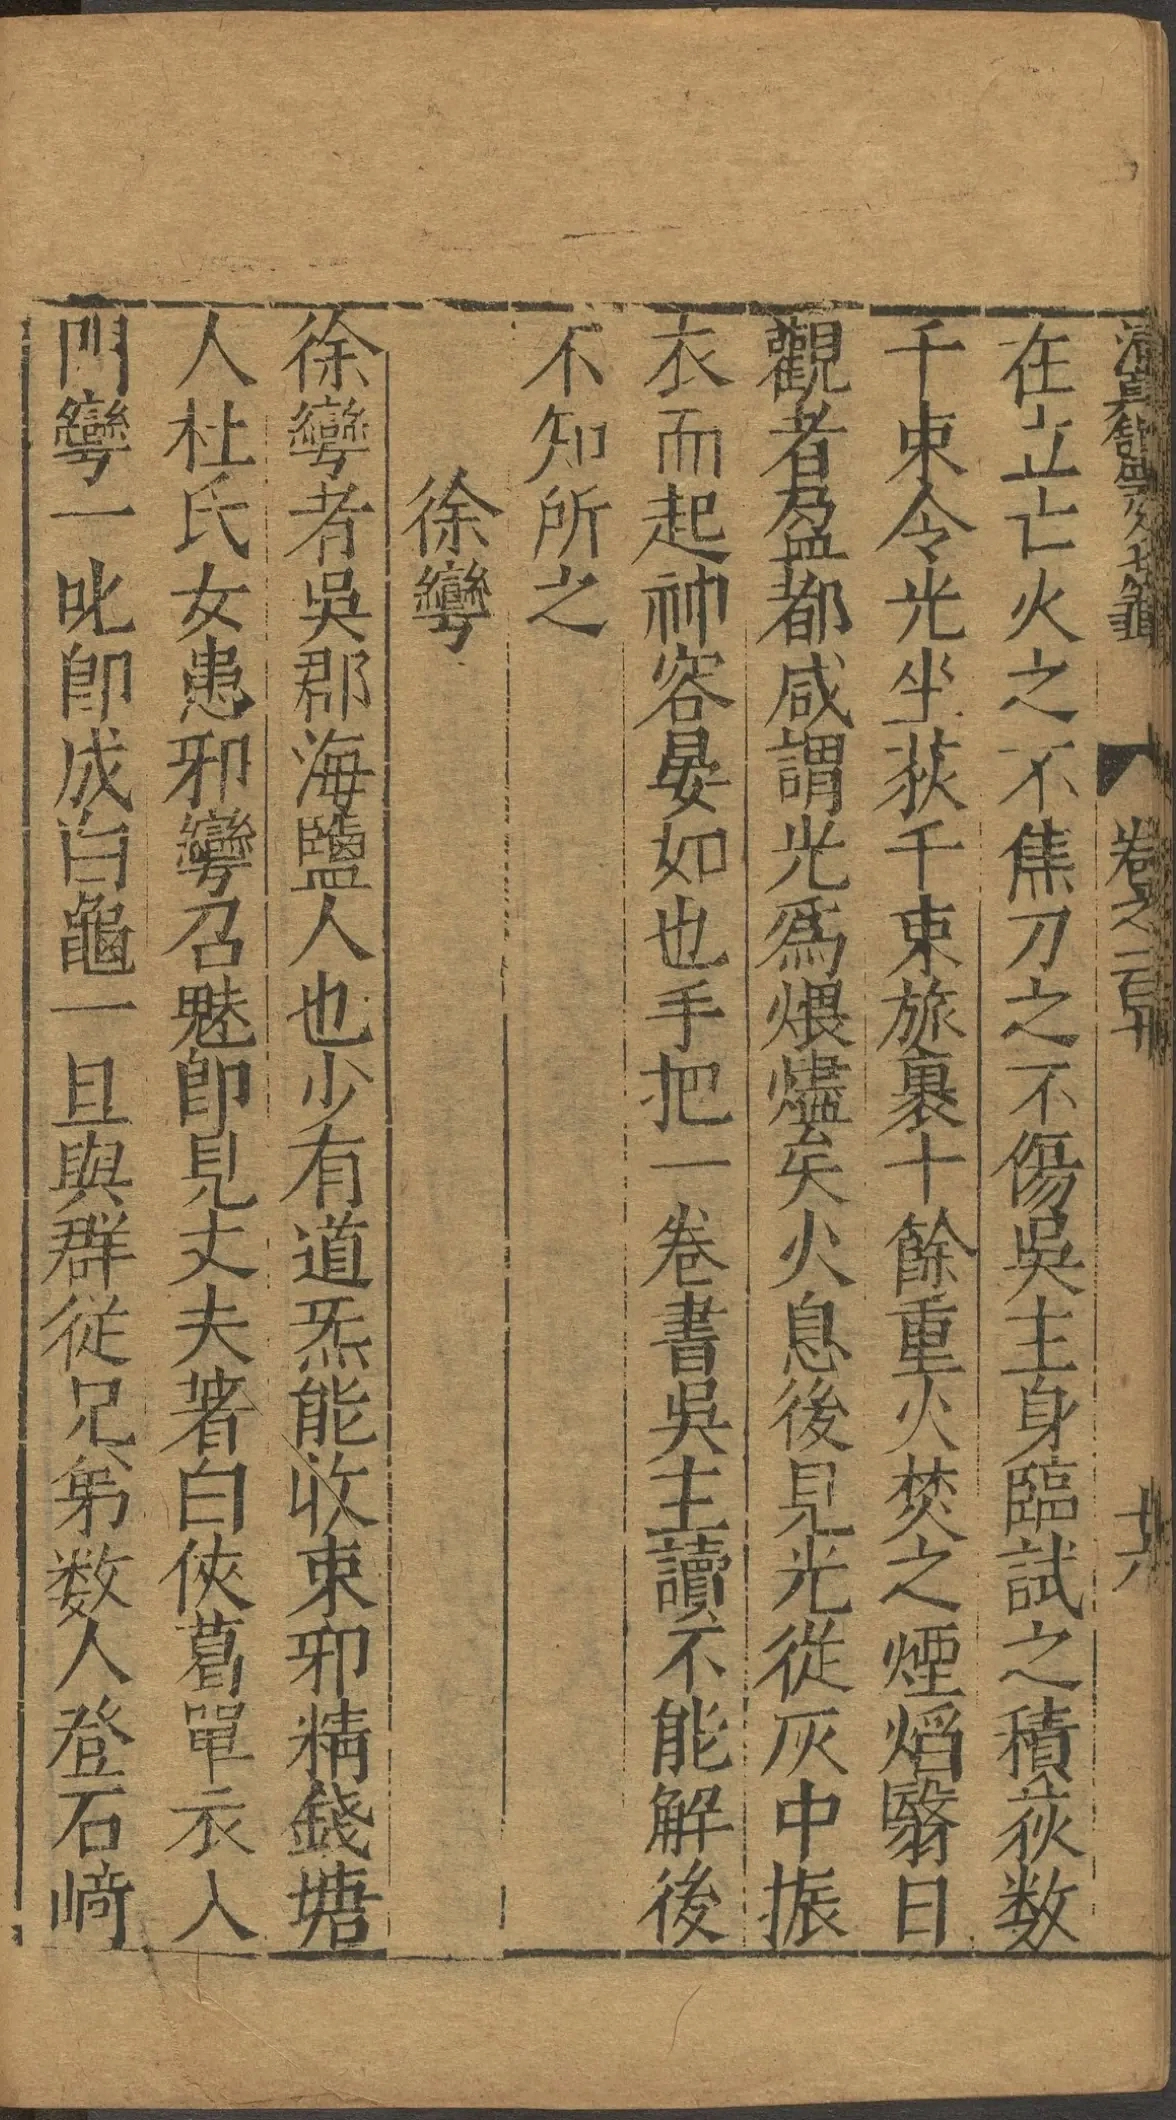 卷之一百廾
廿六
在立亡火之不焦刀之不傷吳主身臨試之積荻数
千束令光坐荻千束旅裹十餘重火焚之煙熖翳日
觀者盈都咸謂光爲煨燼矣火息後見光從灰中振
衣而起神容晏如也手把一卷書吳主讀不能解後
不知所之
徐彎
徐彎者吳郡海鹽人也少有道炁能收束邪精錢塘
人杜氏女患邪彎召魅卽見丈夫著白俠葛單衣入
門彎一叱卽成白龜一旦與群從兄弟数人登石崎